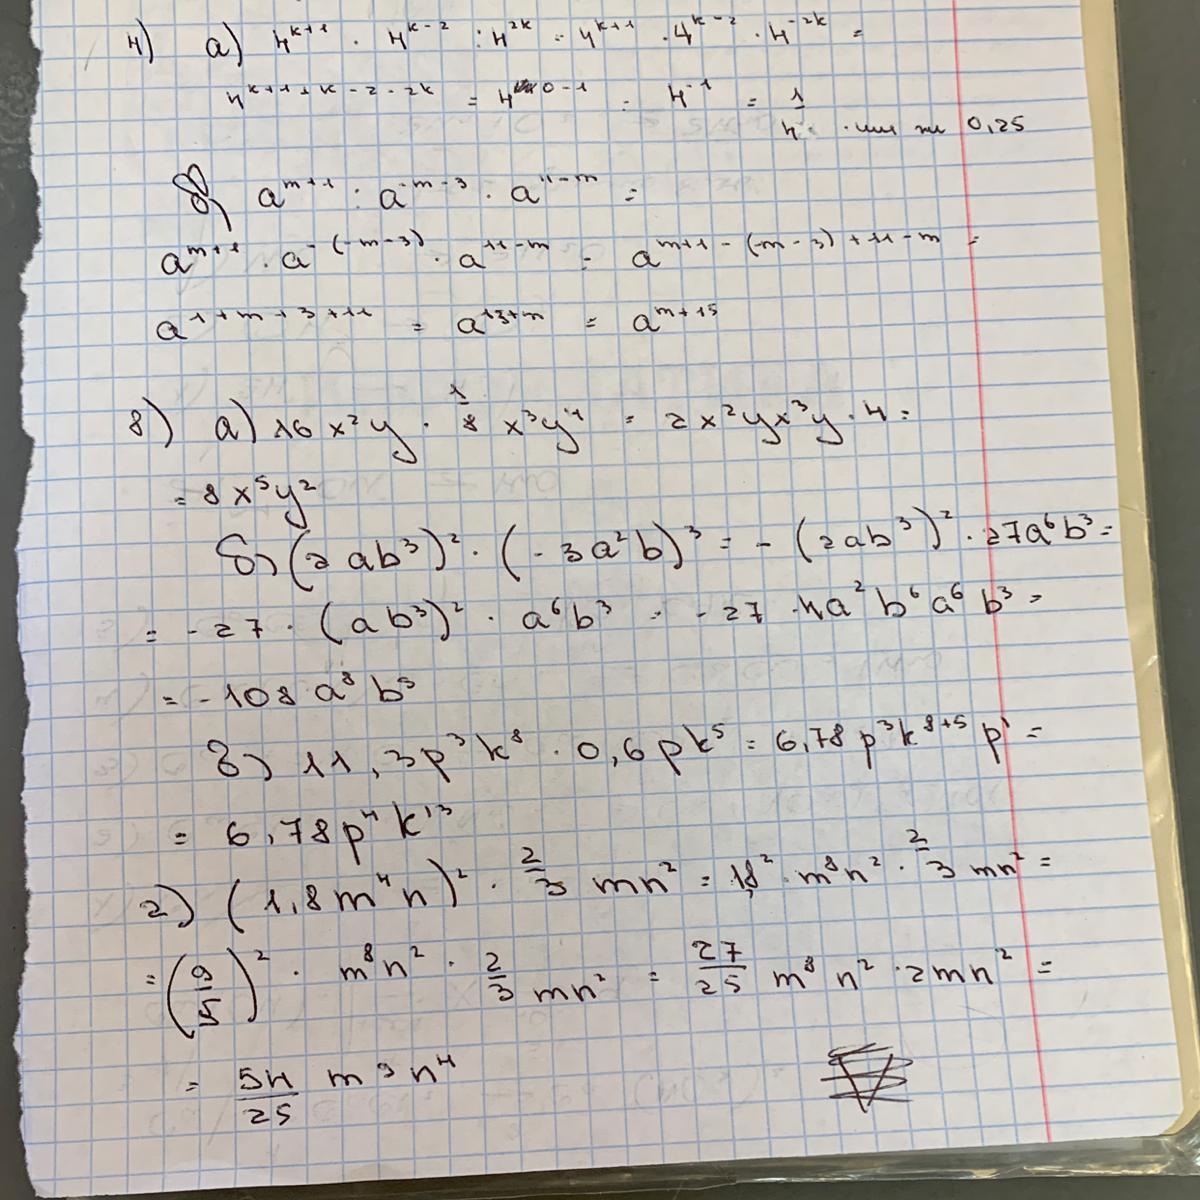 4) а) 4^{k+1} · 4^{k-2} : 4^{2k} = 4^{k+1} · 4^{k-2} · 4^{-2k} =
4^{k+1+k-2-2k} = 4^{0-1} = 4^{-1} = 1/4 или 0,25
б) a^{m+1} : a^{-m-3} · a^{11-m} =
a^{m+1} · a^{-(-m-3)} · a^{11-m} = a^{m+1-(-m-3)+11-m} =
a^{1+m+3+11} = a^{13+m} = a^{m+15}
8) а) 16x²y · 1/8 x³y¹ = 2x²yx³y · 4 =
= 8x⁵y²
б) (2ab³)² · (-3a²b)³ = -(2ab³)² · 27a⁶b³ =
= -27 · (ab³)² · a⁶b³ = -27 · 4a²b⁶a⁶b³ =
= -108a⁸b⁹
в) 11,3p³k⁸ · 0,6pk⁵ = 6,78p³k^{8+5}p¹ =
= 6,78p⁴k¹³
г) (1,8m⁴n)² · 2/3 mn² = 1,8² · m⁸n² · 2/3 mn² =
= (9/5)² · m⁸n² · 2/3 mn² = 27/25 m⁸n² · 2mn² =
= 54/25 m⁹n⁴